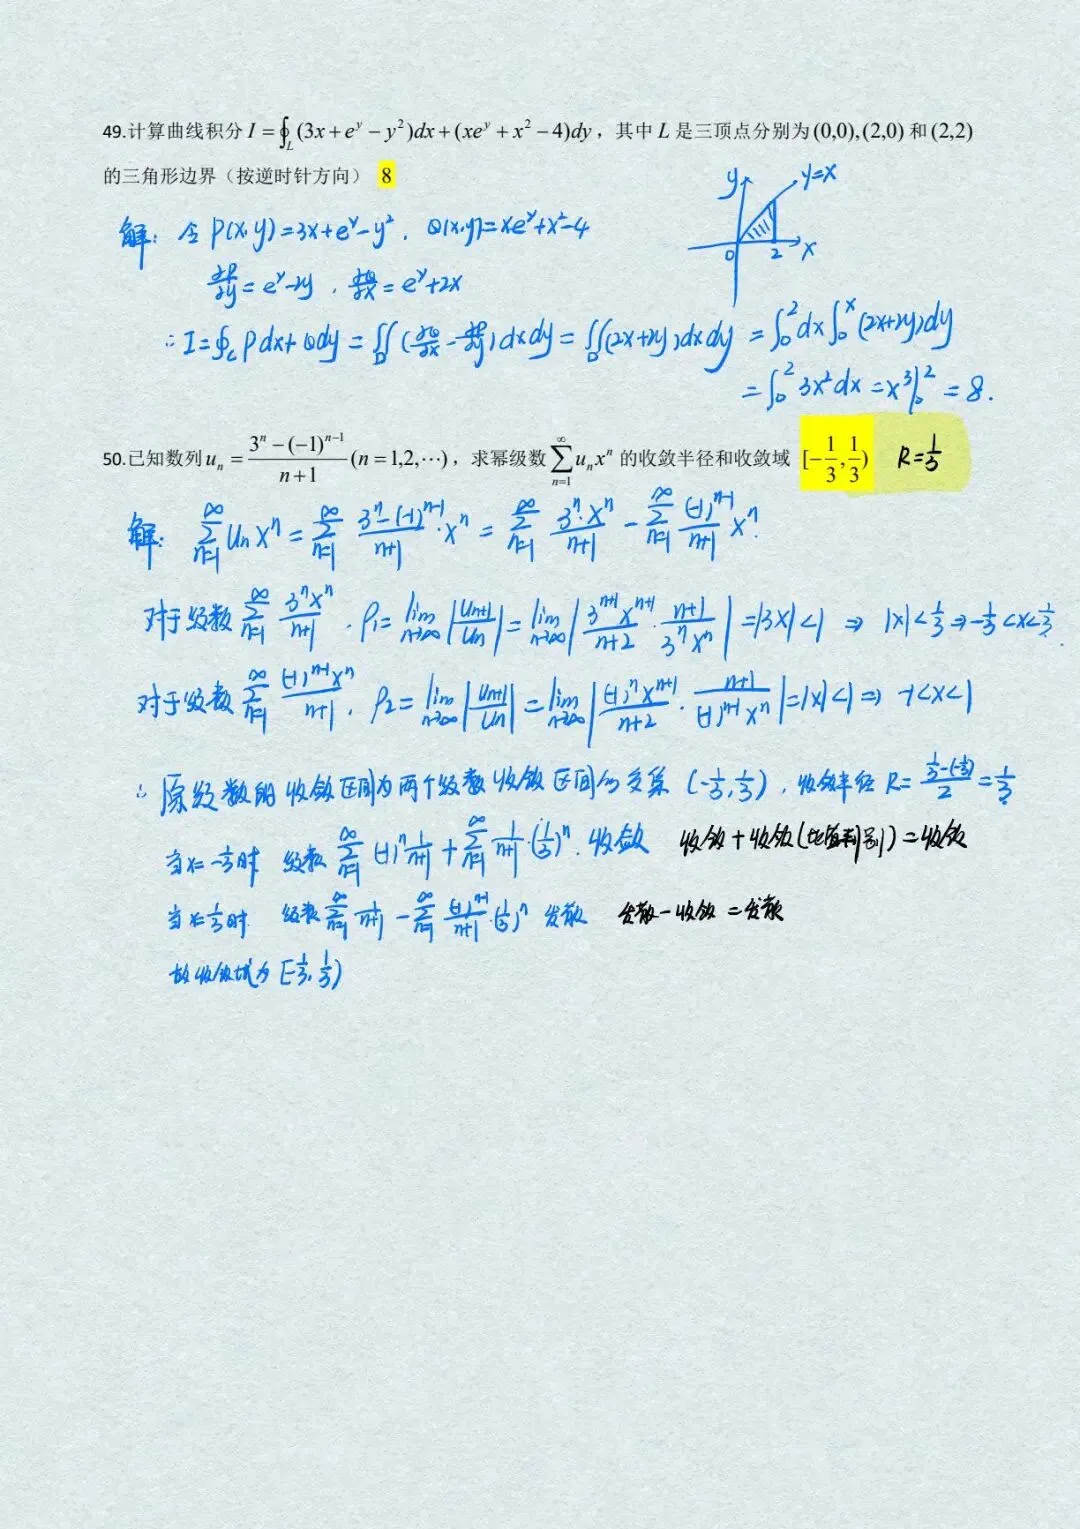 49.计算曲线积分 I = ∮_L (3x + e^y − y²)dx + (xe^y + x² − 4)dy，其中 L 是三顶点分别为 (0,0),(2,0) 和 (2,2)
的三角形边界（按逆时针方向） 8
y y=x
0 2 x
解: 令 P(x,y)=3x+e^y−y², Q(x,y)=xe^y+x²−4
∂P/∂y = e^y−2y , ∂Q/∂x = e^y+2x
∴ I=∮_L Pdx+Qdy = ∬_D (∂Q/∂x − ∂P/∂y)dxdy = ∬_D (2x+2y)dxdy = ∫₀² dx ∫₀^x (2x+2y)dy
= ∫₀² 3x² dx = x³|₀² = 8.
50.已知数列 u_n = (3^n − (−1)^(n−1))/(n+1) (n = 1,2,⋯)，求幂级数 ∑_{n=1}^∞ u_n x^n 的收敛半径和收敛域 [−1/3, 1/3) R=1/3
解: ∑_{n=1}^∞ U_n x^n = ∑_{n=1}^∞ (3^n−(−1)^(n−1))/(n+1) · x^n = ∑_{n=1}^∞ 3^n·x^n/(n+1) − ∑_{n=1}^∞ (−1)^(n−1)/(n+1) x^n.
对于级数 ∑_{n=1}^∞ 3^n x^n/(n+1) . ρ₁= lim_{n→∞} |U_{n+1}/U_n| = lim_{n→∞} |3^(n+1) x^(n+1)/(n+2) · (n+1)/(3^n x^n)| = |3x|<1 ⇒ |x|<1/3 ⇒ −1/3<x<1/3.
对于级数 ∑_{n=1}^∞ (−1)^(n−1) x^n/(n+1) . ρ₂= lim_{n→∞} |U_{n+1}/U_n| = lim_{n→∞} |(−1)^n x^(n+1)/(n+2) · (n+1)/((−1)^(n−1) x^n)| = |x|<1 ⇒ −1<x<1
∴ 原级数的收敛区间为两个级数收敛区间的交集 (−1/3, 1/3) , 收敛半径 R= (1/3−(−1/3))/2 = 1/3
当x=−1/3时 级数 ∑_{n=1}^∞ (−1)^n 1/(n+1) + ∑_{n=1}^∞ 1/(n+1)·(1/3)^n . 收敛 收敛+收敛(比值判别)=收敛
当x=1/3时 级数 ∑_{n=1}^∞ 1/(n+1) − ∑_{n=1}^∞ (−1)^(n−1)/(n+1)·(1/3)^n 发散 发散−收敛=发散
故收敛域为 [−1/3, 1/3)